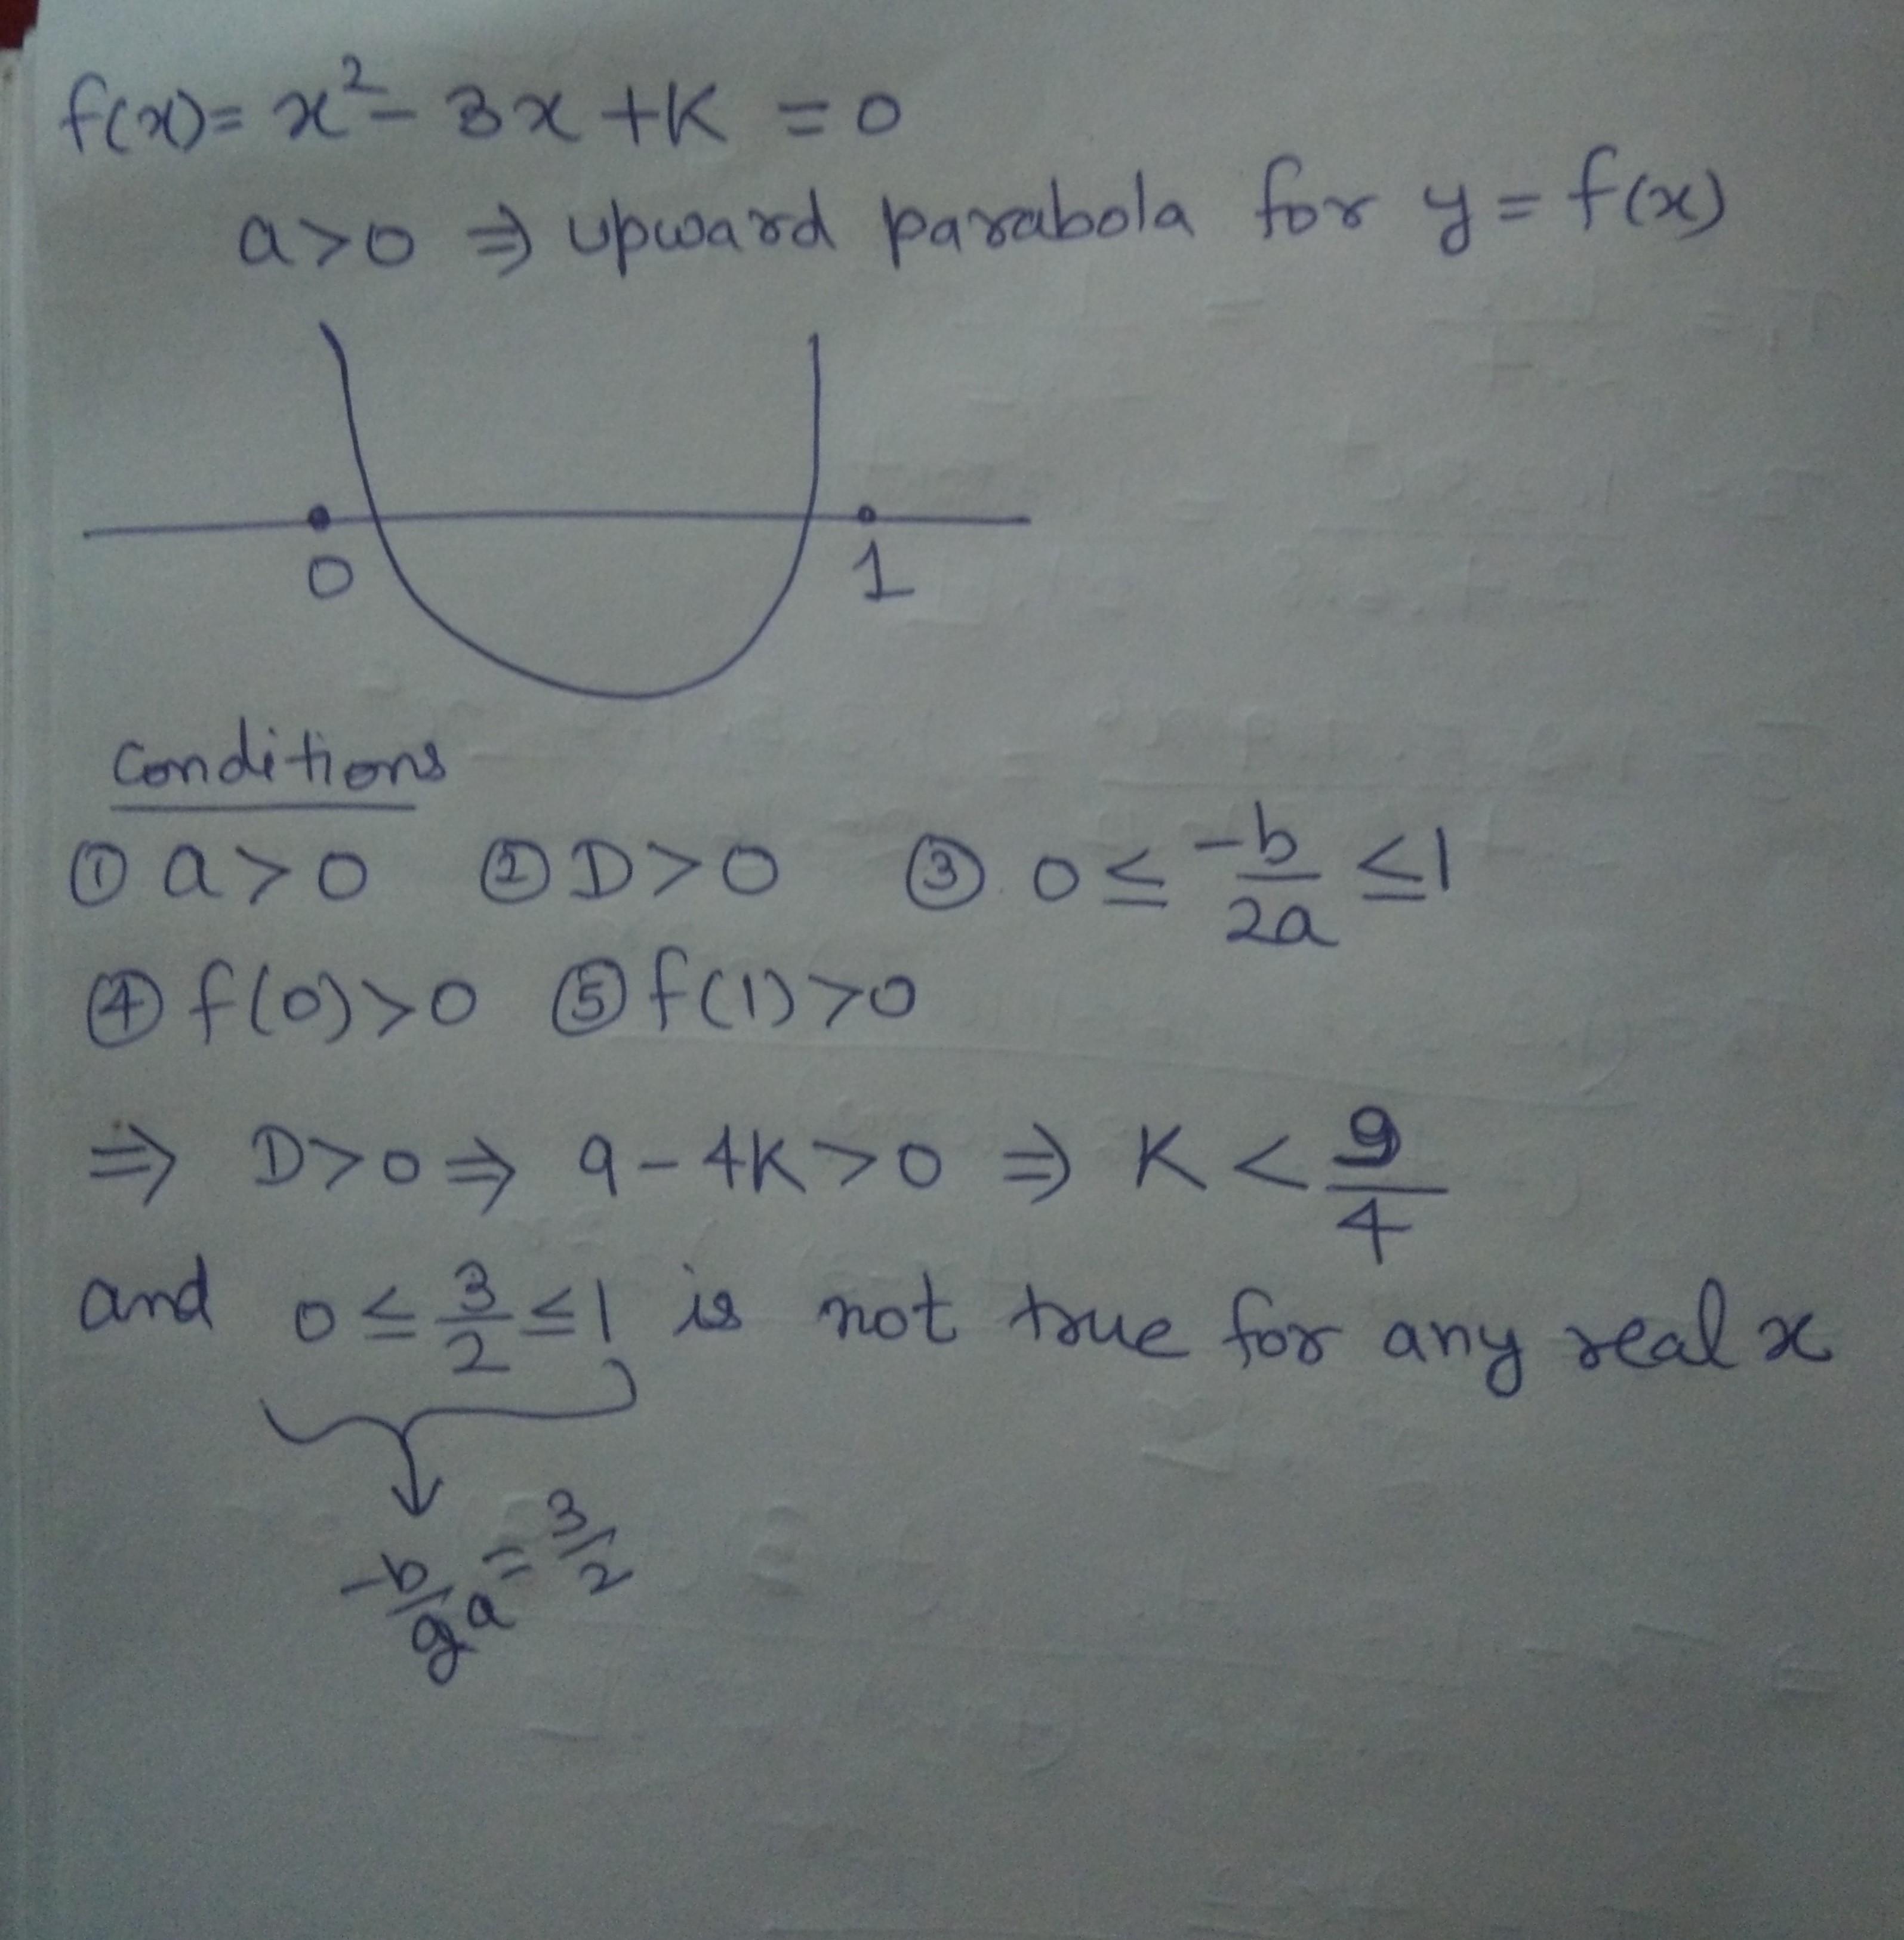 f(x) = x² - 3x + K = 0
a>0 ⇒ upward parabola for y = f(x)
0 1
Conditions
① a > 0 ② D > 0 ③ 0 ≤ -b/2a ≤ 1
④ f(0) > 0 ⑤ f(1) > 0
⇒ D > 0 ⇒ 9 - 4K > 0 ⇒ K < 9/4
and 0 ≤ 3/2 ≤ 1 is not true for any real x
-b/2a = 3/2